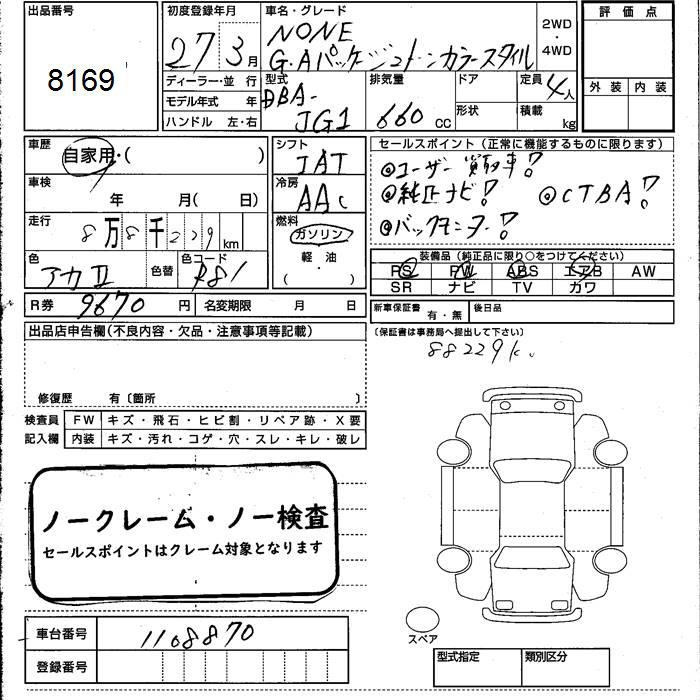 出品番号
8169
初度登録年月
27 3月
車名・グレード
NONE
G・Aパッケージ2トーンカラースタイル
2WD
・
4WD
評価点
外装 内装
ディーラー・並行
モデル年式 年
ハンドル 左・右
型式
DBA-
JG1
排気量
660 cc
ドア
形状
定員 4人
積載 kg
車歴
自家用・( )
車検
年 月( 日)
走行
8万8千229km
色
アカII
色替
色コード
R81
シフト
IAT
冷房
AAC
燃料
ガソリン
軽油
( )
セールスポイント (正常に機能するものに限ります)
◎ユーザー買取車!
◎純正ナビ! ◎CTBA!
◎バックモニター!
装備品 (純正品に限り○をつけてください)
PS PW ABS エアB AW
SR ナビ TV カワ
R券 9670円
名変期限 月 日
新車保証書 有・無
後日品
(保証書は事務局へ提出して下さい)
88229k
出品店申告欄(不良内容・欠品・注意事項等記載)
修復歴 有〔箇所 〕
検査員 FW キズ・飛石・ヒビ割・リペア跡・X要
記入欄 内装 キズ・汚れ・コゲ・穴・スレ・キレ・破レ
ノークレーム・ノー検査
セールスポイントはクレーム対象となります
車台番号 1108870
登録番号
スペア
型式指定 類別区分